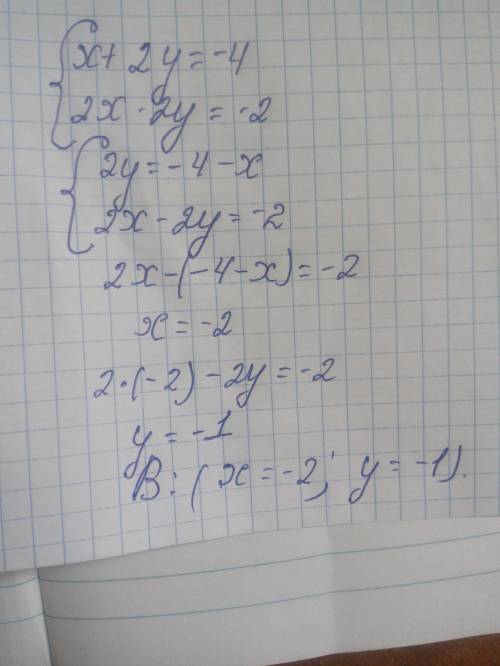 x + 2y = -4
2x - 2y = -2
2y = -4 - x
2x - 2y = -2
2x - (-4 - x) = -2
x = -2
2 · (-2) - 2y = -2
y = -1
В: (x = -2; y = -1).